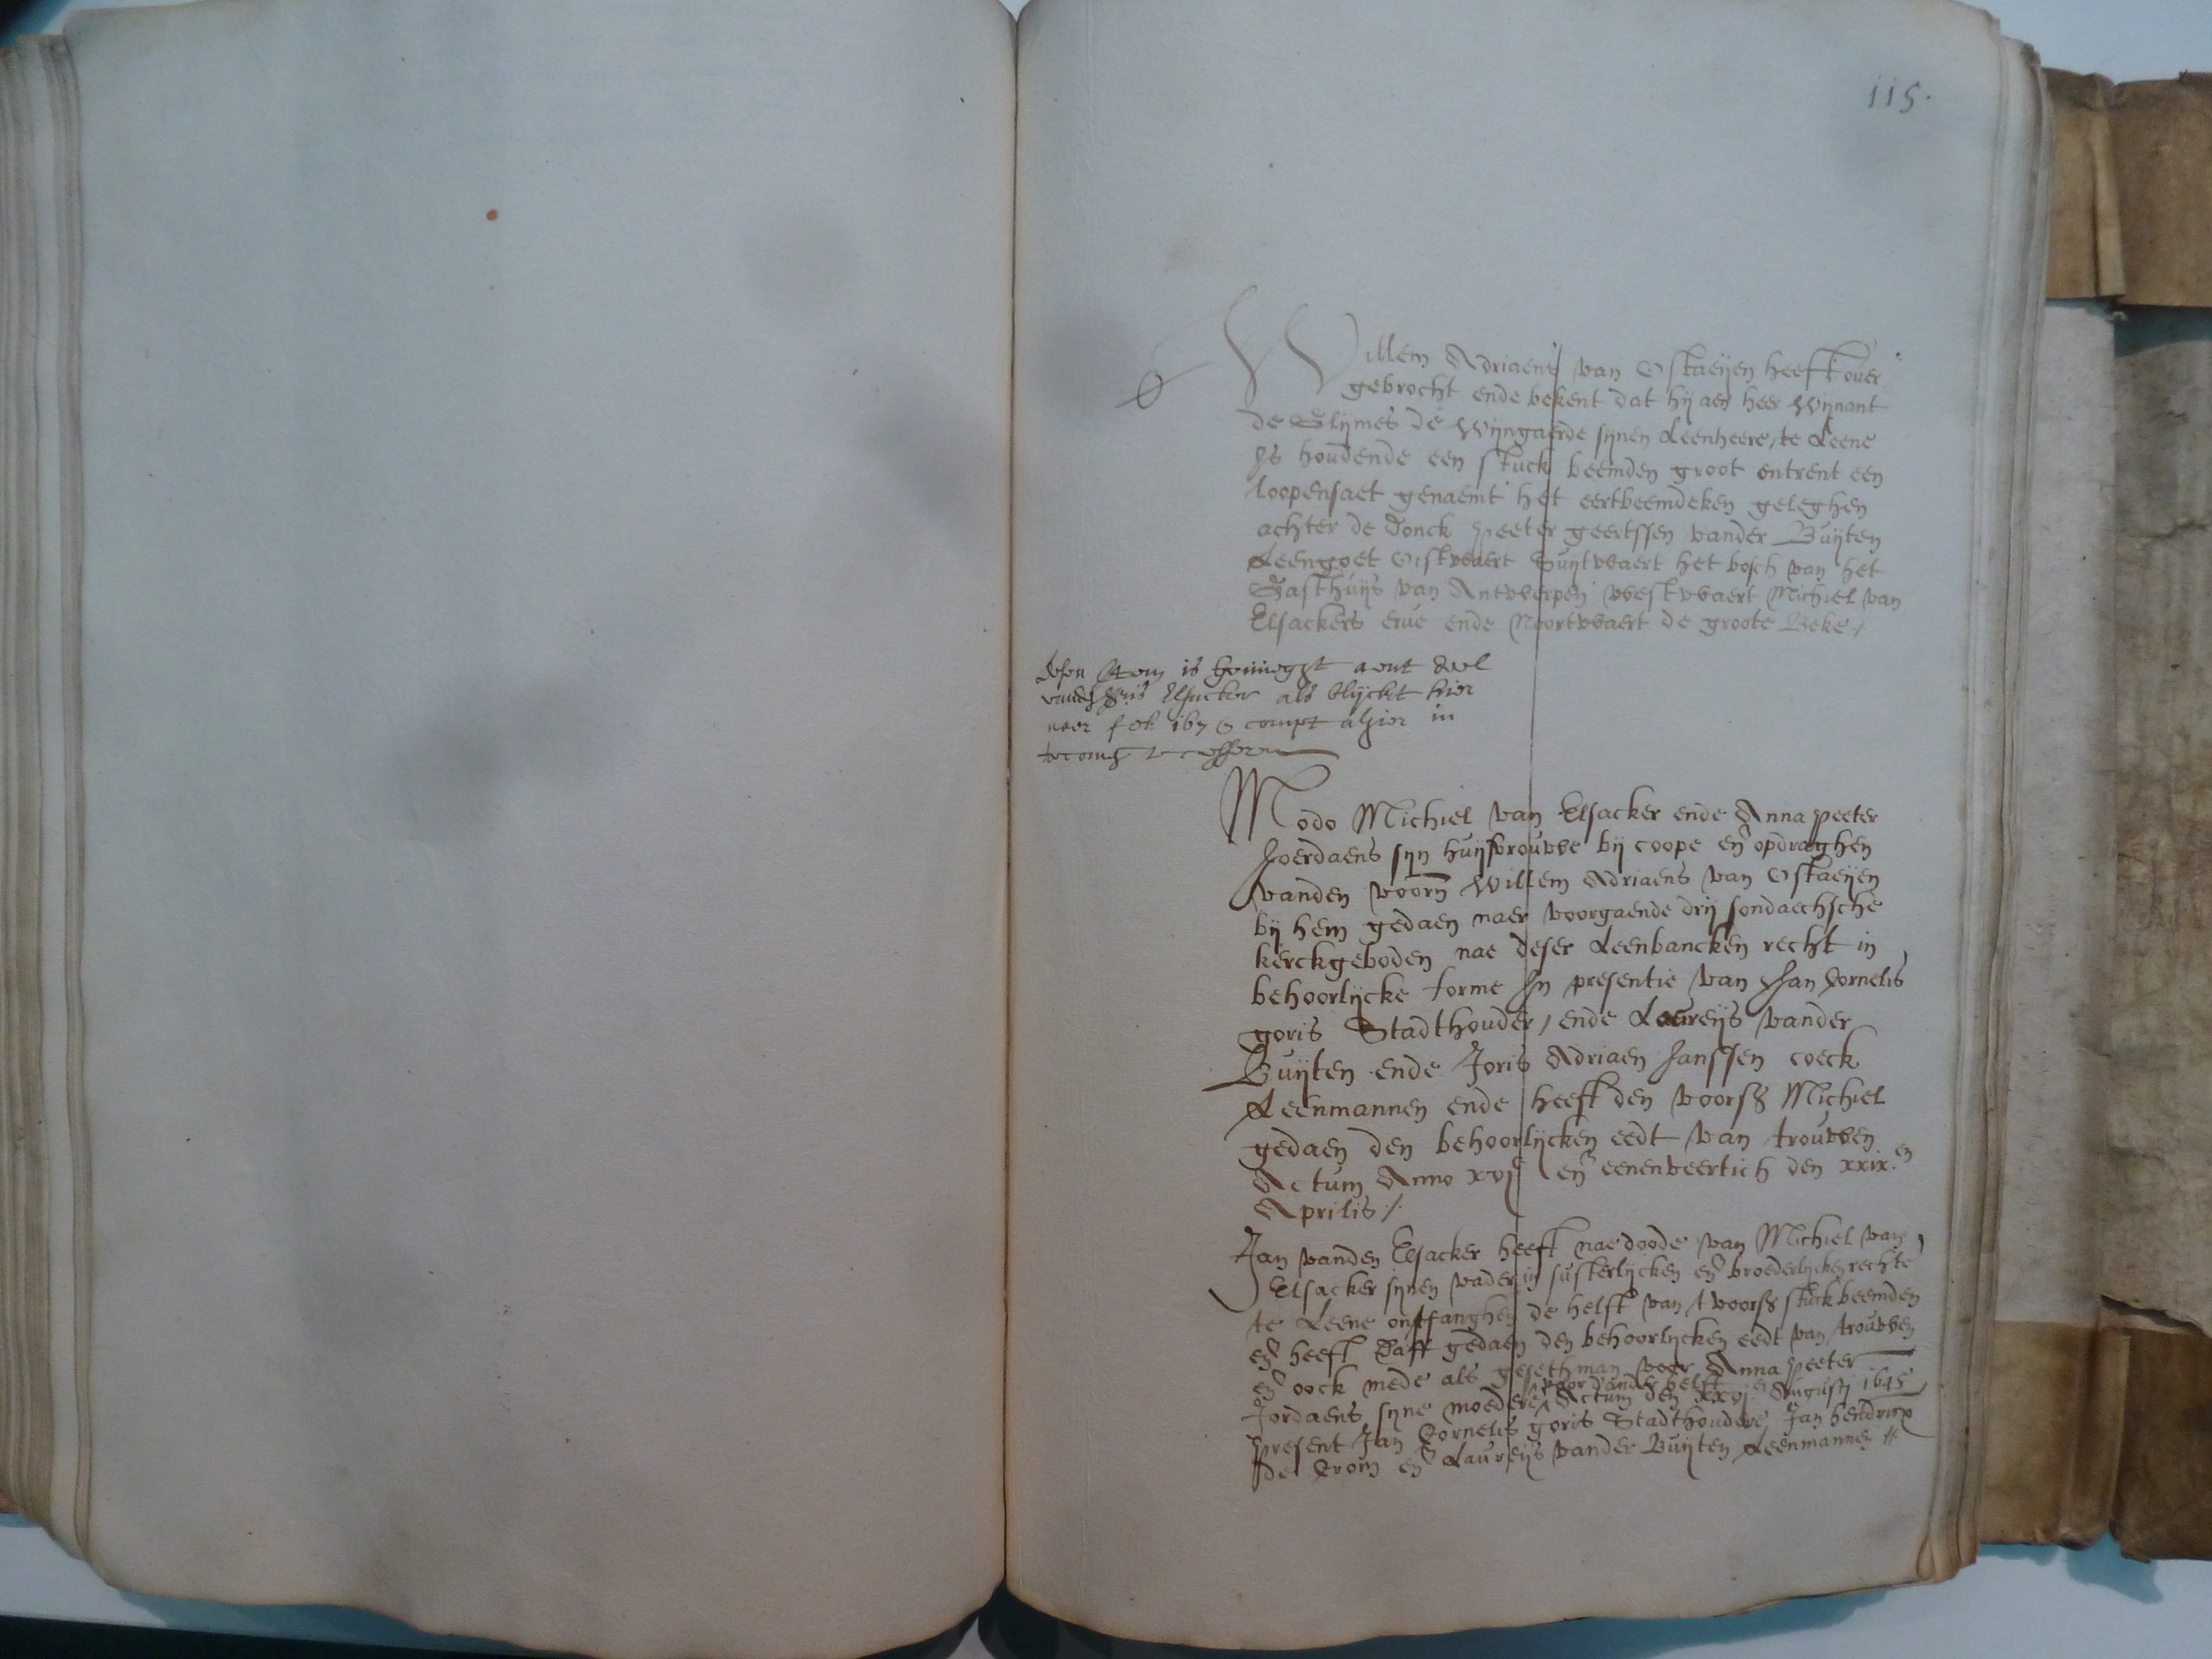 115.
Willem Adriaens van Ostaeijen heeft over
gebrocht ende bekent dat hij aen heer Wijnant
de Glijmes de Wijngaerde sijnen Leenheere, te Leene
Is houdende een stuck beemden groot ontrent een
loopensaet genaemt het eertbeemdeken geleghen
achter de Donck peeter geertssen vander Buijten
Leengoet Oistwaert Suijtwaert het bosch van het
Gasthuijs van Antwerpen westwaert Michiel van
Elsackers erve ende Noortwaert de groote Beke /
desen Item is gevueght aent deel
Elsacker als blijckt hier
naer fol. compt alhier in

Modo Michiel van Elsacker ende Anna peeter
Joerdaens sijn huijsvrouwe bij coope en̄ opdraghen
vanden voorn̄ Willem Adriaens van Ostaeijen
bij hem gedaen naer voorgaende drij sondaechsche
kerckgeboden nae deser Leenbancken recht in
behoorlijcke forme In presentie van Jan Cornelis
goris Stadthouder / ende Laureijs vander
Buijten ende Joris Adriaen Janssen coeck
Leenmannen ende heeft den voors Michiel
gedaen den behoorlijcken eedt van trouwen
Actum Anno xvjc en̄ eenenveertich den xxix.en
Aprilis /.
Jan vanden Elsacker heeft nae doode van Michiel van
Elsacker sijnen vader in susterlijcken en̄ broederlijcken rechte
te Leene ontfanghen de helft van t voors stuck beemden
en̄ heeft daff gedaen den behoorlijcken eedt van trouwen
en̄ oock mede als gesethman voor Anna peeter
voor dander helft
Jordaens sijne moedere Actum den Augusti 1645
present Jan Cornelis goris Stadthoudere Jan hendricx
de Crom en̄ Laureijs vander Buijten Leenmannen //